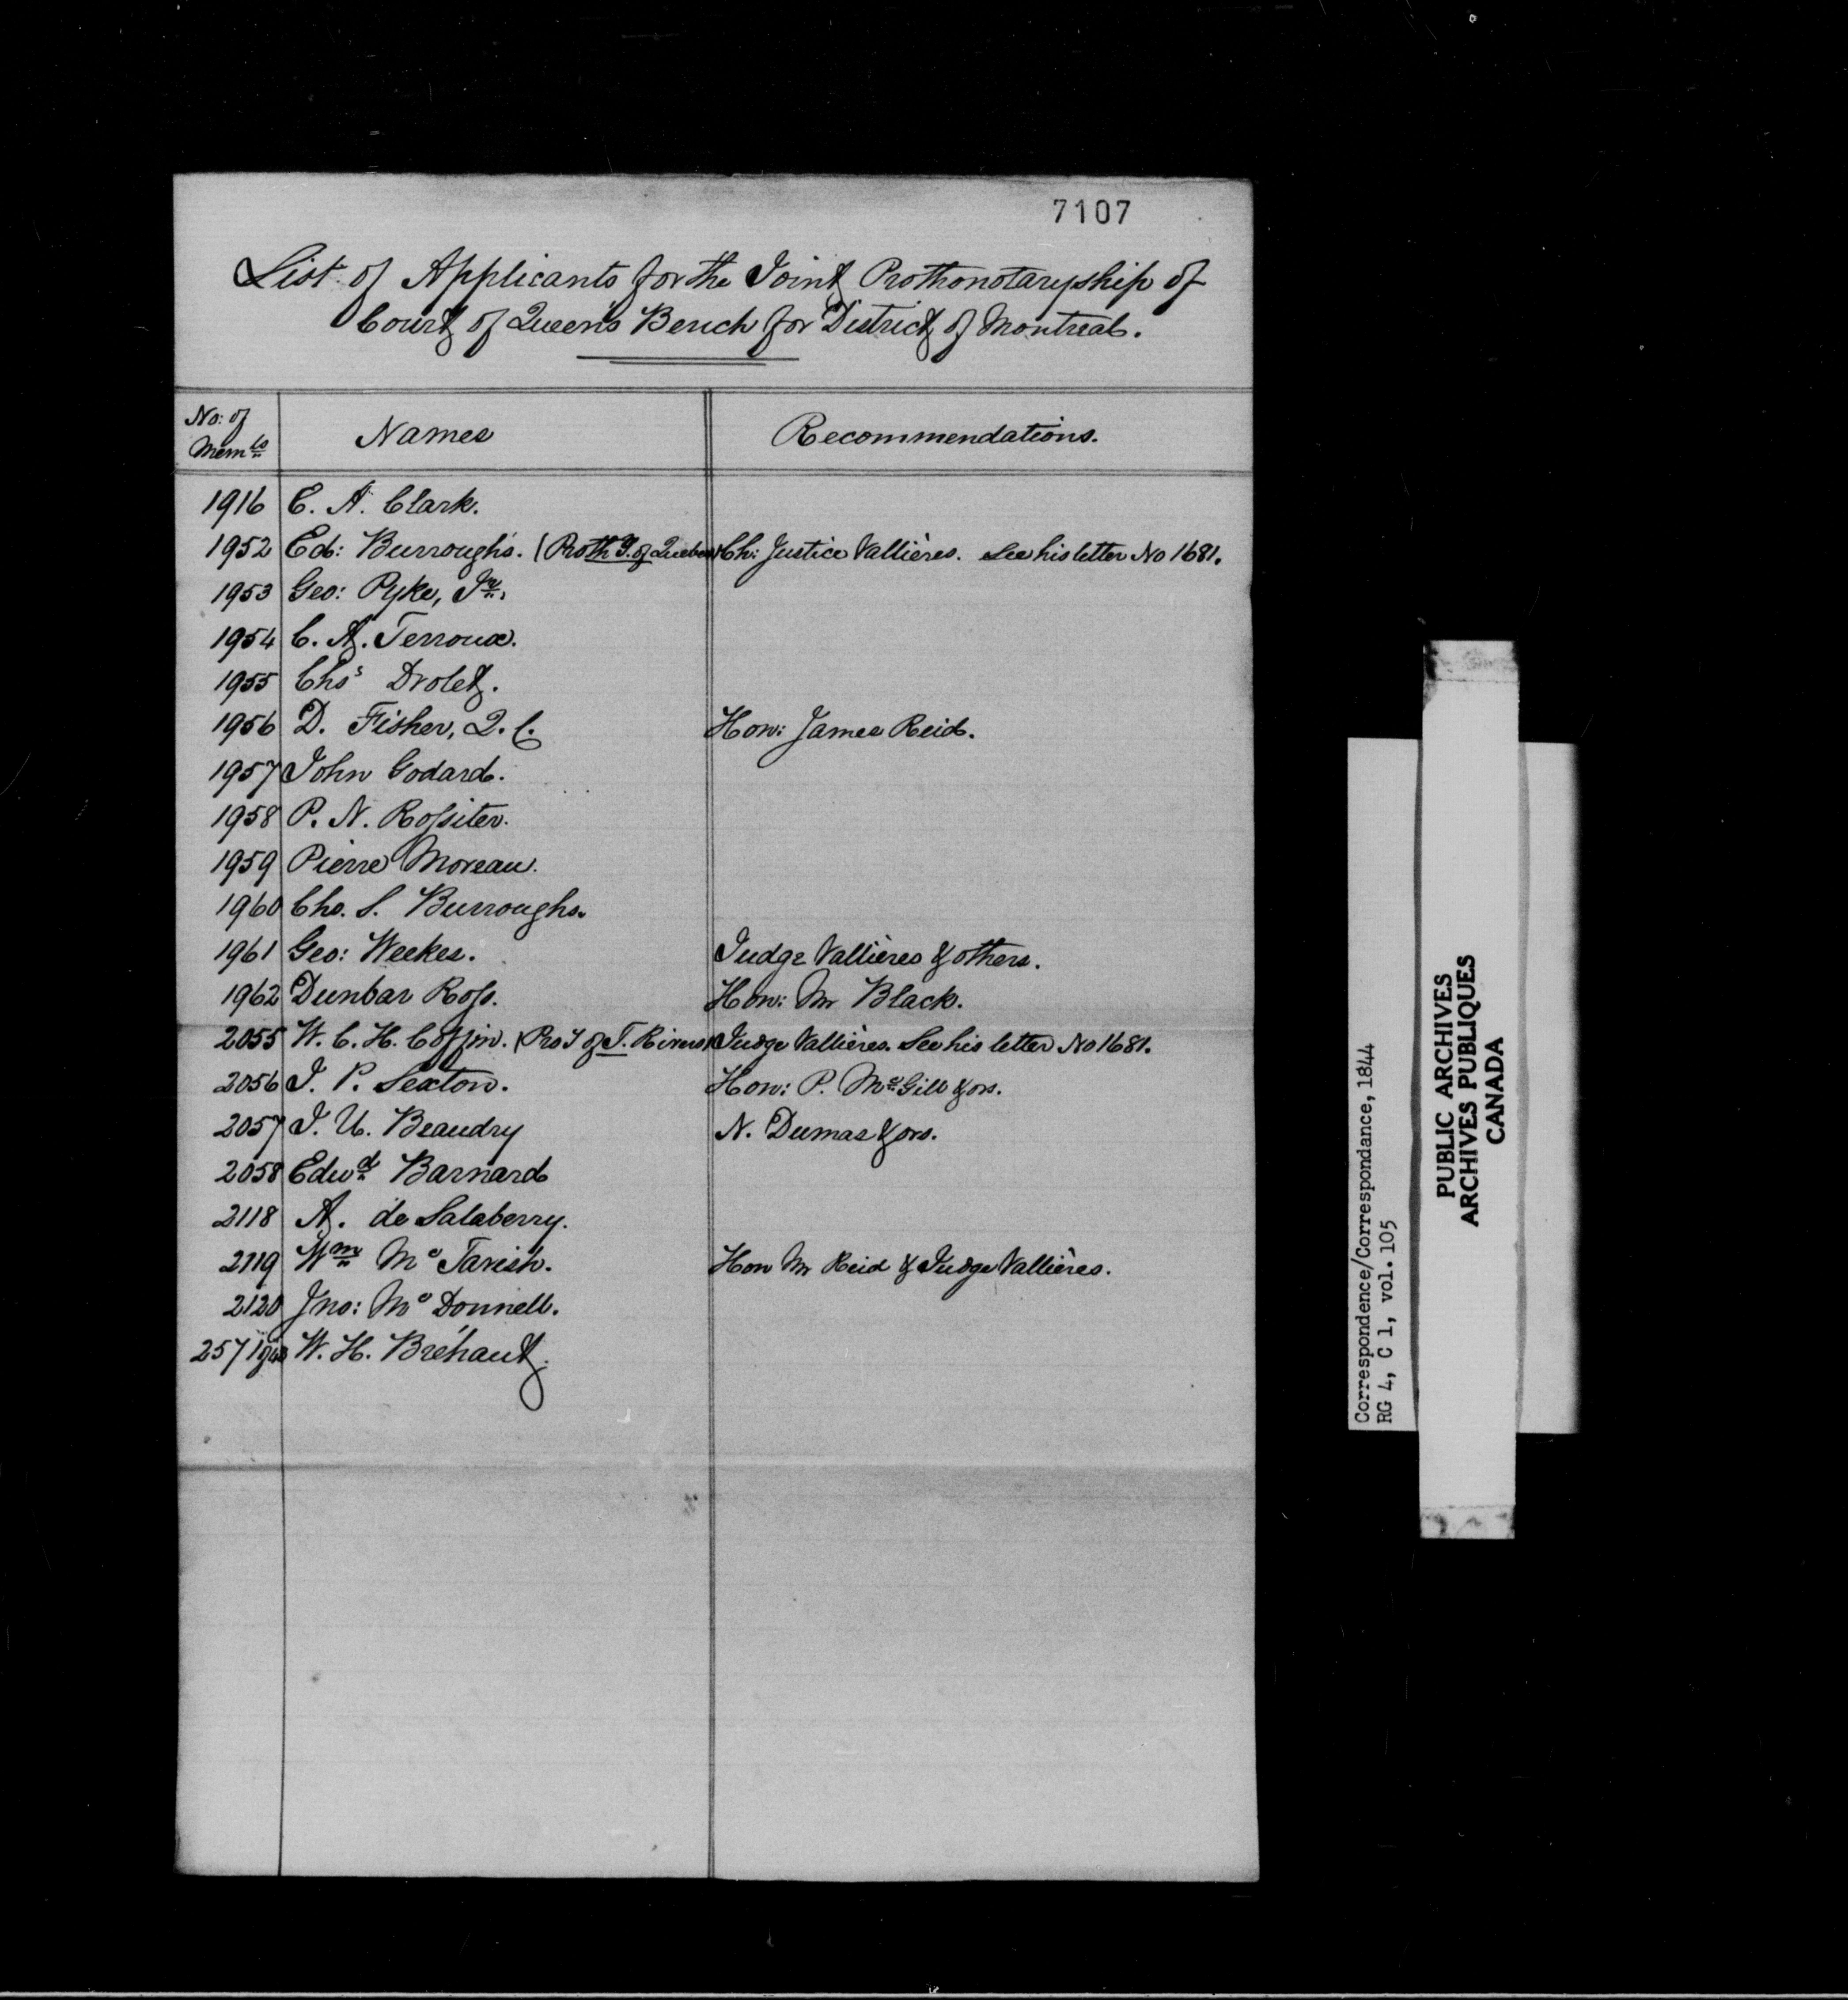 7107
List of Applicants for the Joint Prothonotaryship of
Court of Queen's Bench for District of Montreal.
No: of Memts Names Recommendations.
1916 C. A. Clark.
1952 Ed: Burroughs. (Prothy. of Quebec) Ch: Justice Vallières. See his letter No 1681.
1953 Geo: Pyke, Jr.
1954 C. A. Terroux.
1955 Chs Drolet.
1956 D. Fisher, Q.C. Hon: James Reid.
1957 John Godard.
1958 P. N. Rossiter.
1959 Pierre Moreau.
1960 Chs. S. Burroughs.
1961 Geo: Weekes. Judge Vallières & others.
1962 Dunbar Ross. Hon: Mr Black.
2055 W. C. H. Coffin. (Proy of T. Rivers) Judge Vallières. See his letter No 1681.
2056 J. P. Sexton. Hon: P. McGill & ors.
2057 J. U. Beaudry N. Dumas & ors.
2058 Edwd Barnard
2118 A. de Salaberry.
2119 Wm McTavish. Hon Mr Reid & Judge Vallières.
2120 Jno: McDonnell.
257 W. H. Bréhaut.
Correspondence/Correspondance, 1844
RG 4, C 1, vol. 105
PUBLIC ARCHIVES
ARCHIVES PUBLIQUES
CANADA